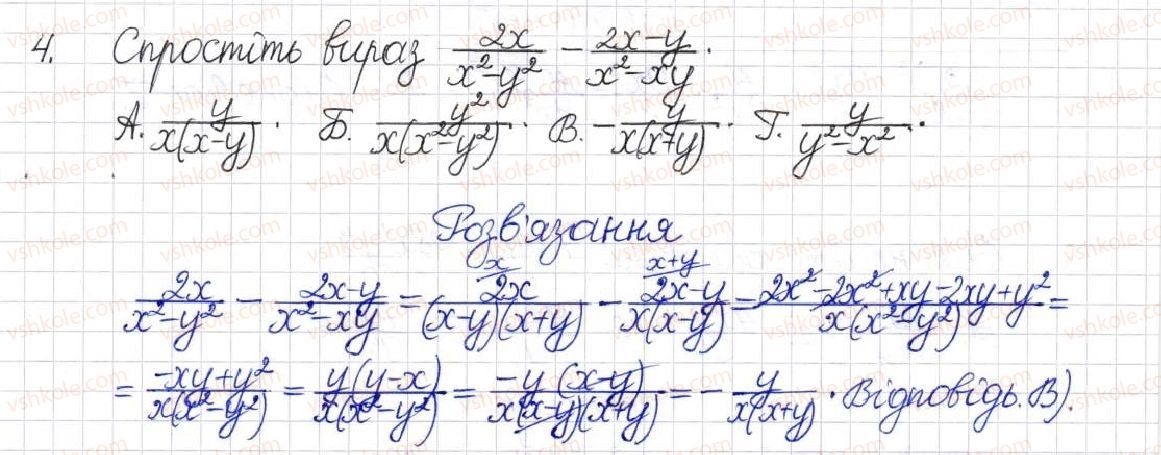 4. Спростіть вираз 2x/(x²-y²) - (2x-y)/(x²-xy).
А. y/(x(x-y)). Б. y²/(x(x²-y²)). В. -y/(x(x+y)). Г. y/(y²-x²).
Розв'язання
2x/(x²-y²) - (2x-y)/(x²-xy) = x/ 2x/((x-y)(x+y)) - x+y/ (2x-y)/(x(x-y)) = (2x²-2x²+xy-2xy+y²)/(x(x²-y²)) =
= (-xy+y²)/(x(x²-y²)) = y(y-x)/(x(x²-y²)) = -y(x-y)/(x(x-y)(x+y)) = - y/(x(x+y)). Відповідь. В).
vshkole.com